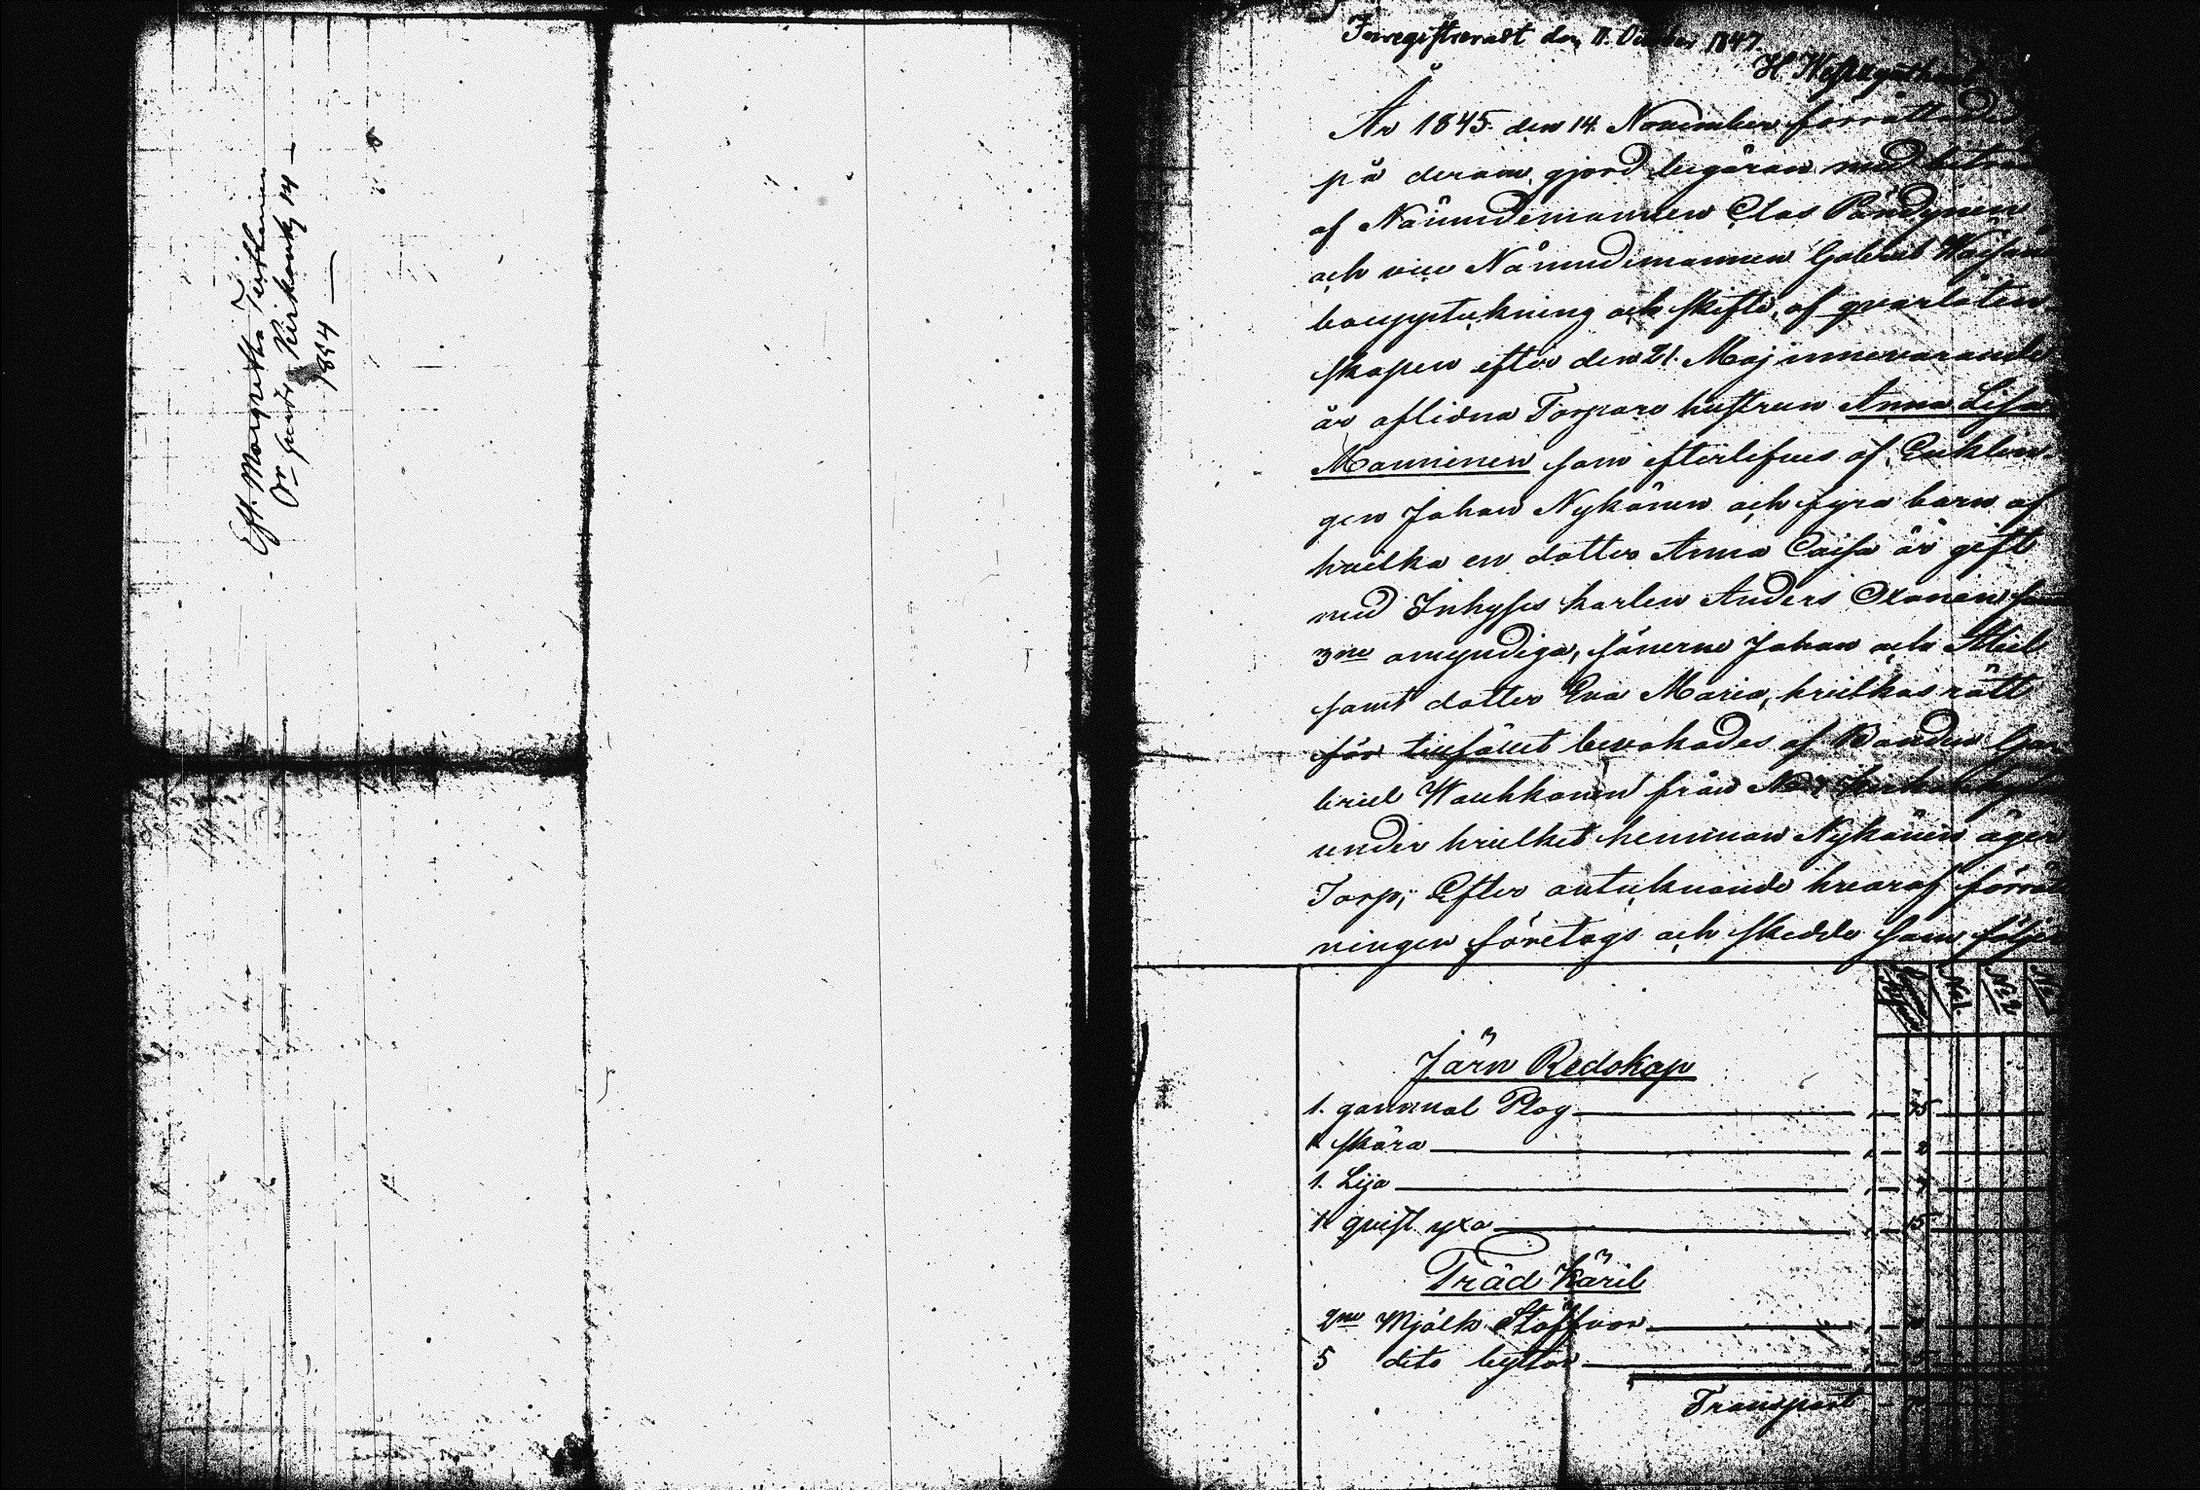 Eft. Margretha
1844
Inregistreradt den 11. October 1847.
År 1845. den 14. November förrättades
på derom gjord begäran med
af Nämndemannen Clas Pändynen
och vice Nämndemannen Gabriel
bouppteckning och skifte, af qvarlåten-
skapen efter den 21. Maj innevarande
år aflidna Torpare hustrun Anna Lisa
Manninen som efterlefves af Enklin-
gen Johan Nykänen och fyra barn af
hvilka en dotter Anna Caisa är gift
med Inhyses karlen Anders Ikonen
3ne omyndiga, sönerne Johan och Abel
samt dotter Eva Maria, hvilkas rätt
för tillfället bevakades af Bonden Ga-
briel Wauhkonen från No 7
under hvilket hemman Nykänen äger
Torp; Efter antecknande hvaraf förrätt-
ningen företogs och skedde som följer
No 1. No 2
Järn Redskap
1. gammal Plog 75
1 skära 2
1. Lija
1 qvist yxa 15
Träd Käril
2ne Mjölk Stäffvor
5 dito byttor
Transport